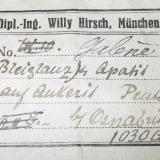 Dipl.-Ing. Willy Hirsch, München
No. Jelene
Bleiglanz, Apatit
auf Ankerit
by Osnabrü
10306